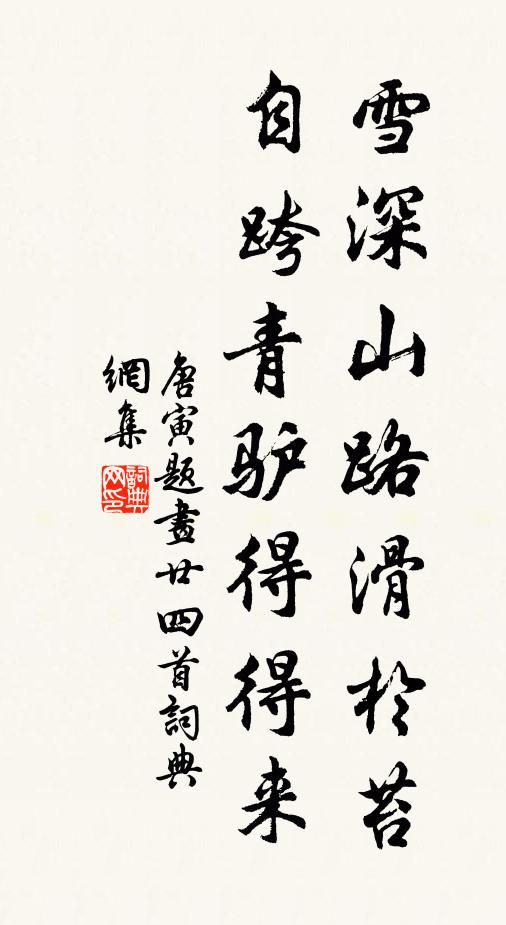 雪深山路滑於苔
自跨青驴得得来
唐寅题畫廿四首詞典
網集
詞典網印